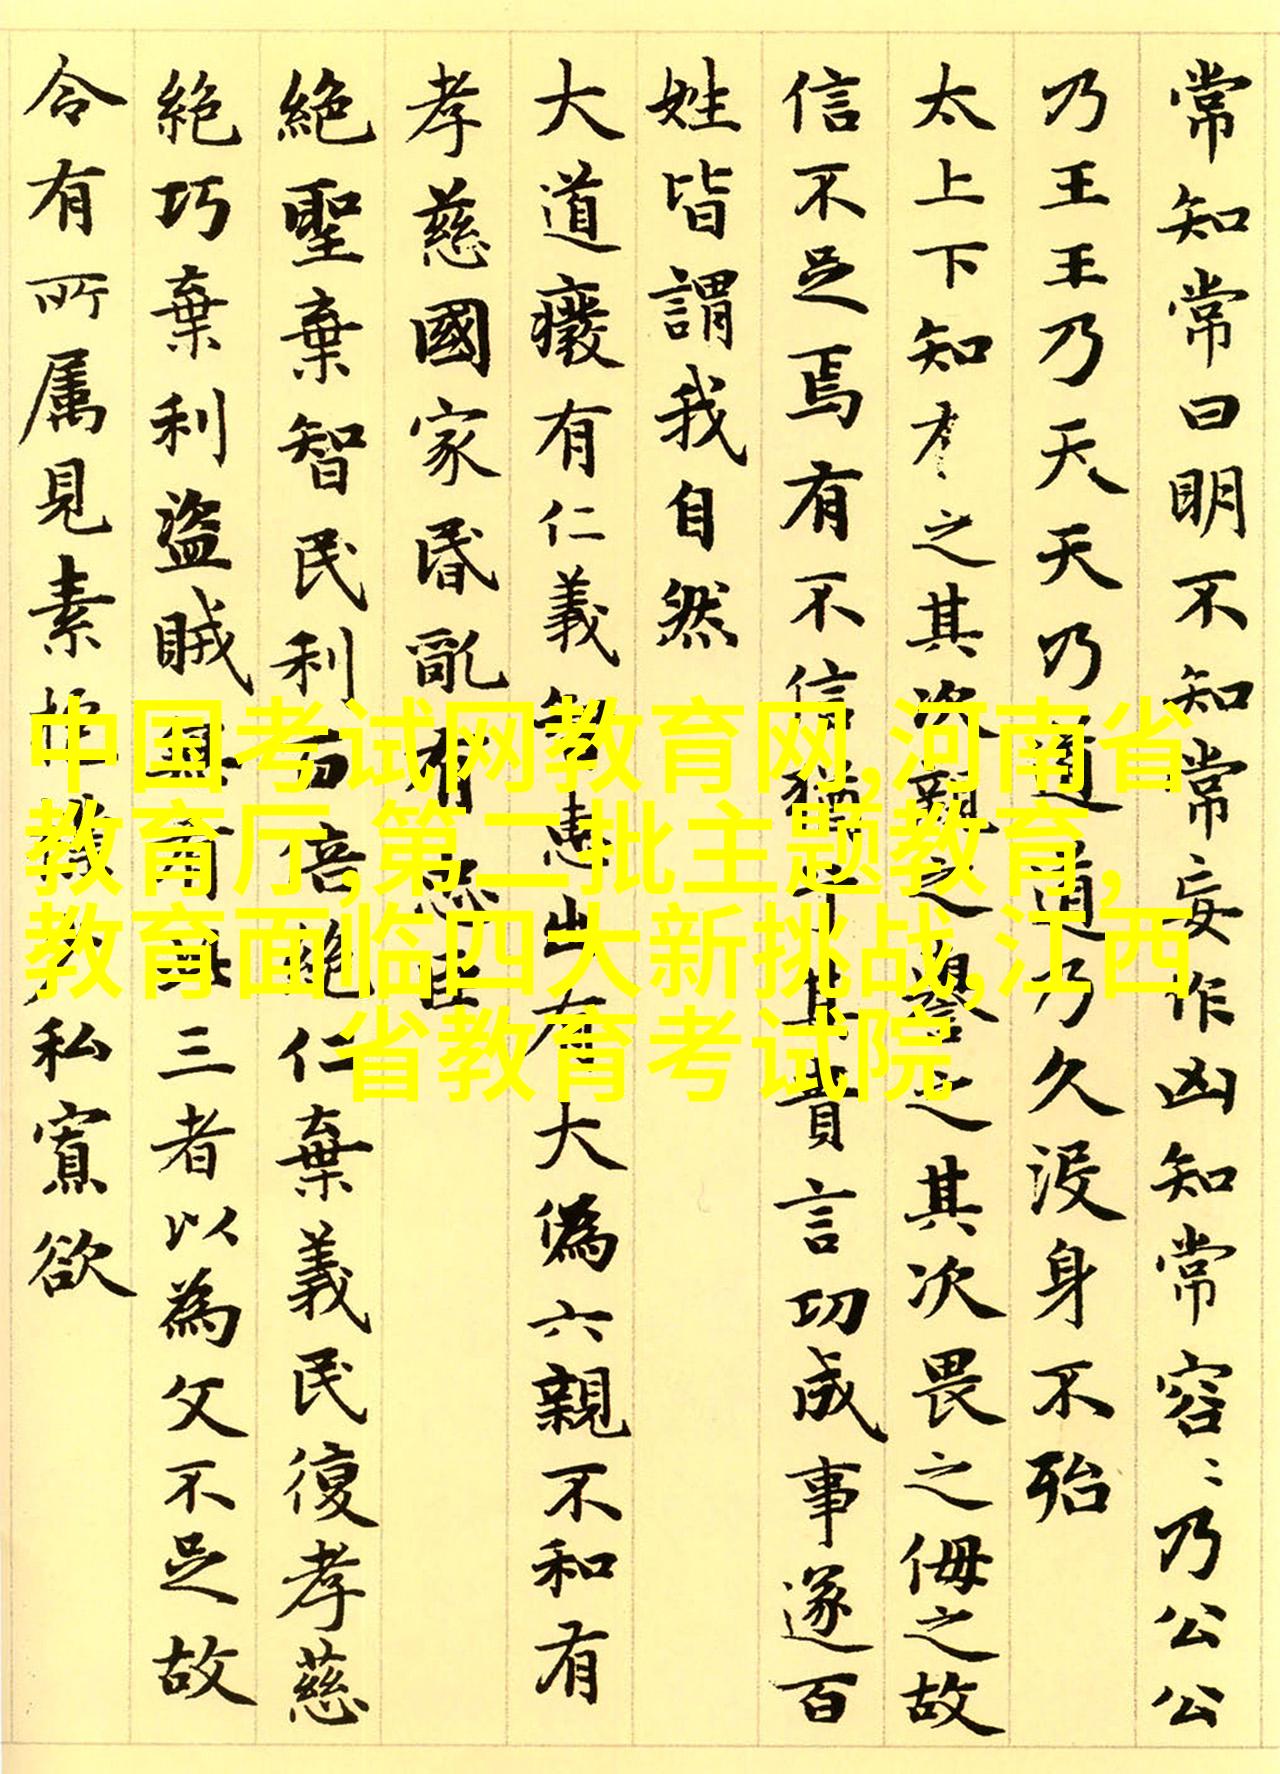 常知常曰明不知常妄作凶知常容〻乃公公
乃王王乃天天乃道道乃久没身不殆
太上下知有之其次親之譽之其次畏之侮之故
信不足焉有不信信猶乎其貴言功成事遂百
姓皆謂我自然
大道癈有仁義智惠出有大偽六親不和有
孝慈國家昬亂有忠臣
絶聖棄智民利百倍絶仁棄義民復孝慈
絶巧棄利盗賊無有此三者以為文不足故
令有所属見素抱撲少私寡欲
中国考试网教育网,河南省
教育厅,第二批主题教育,
教育面临四大新挑战,江西
省教育考试院